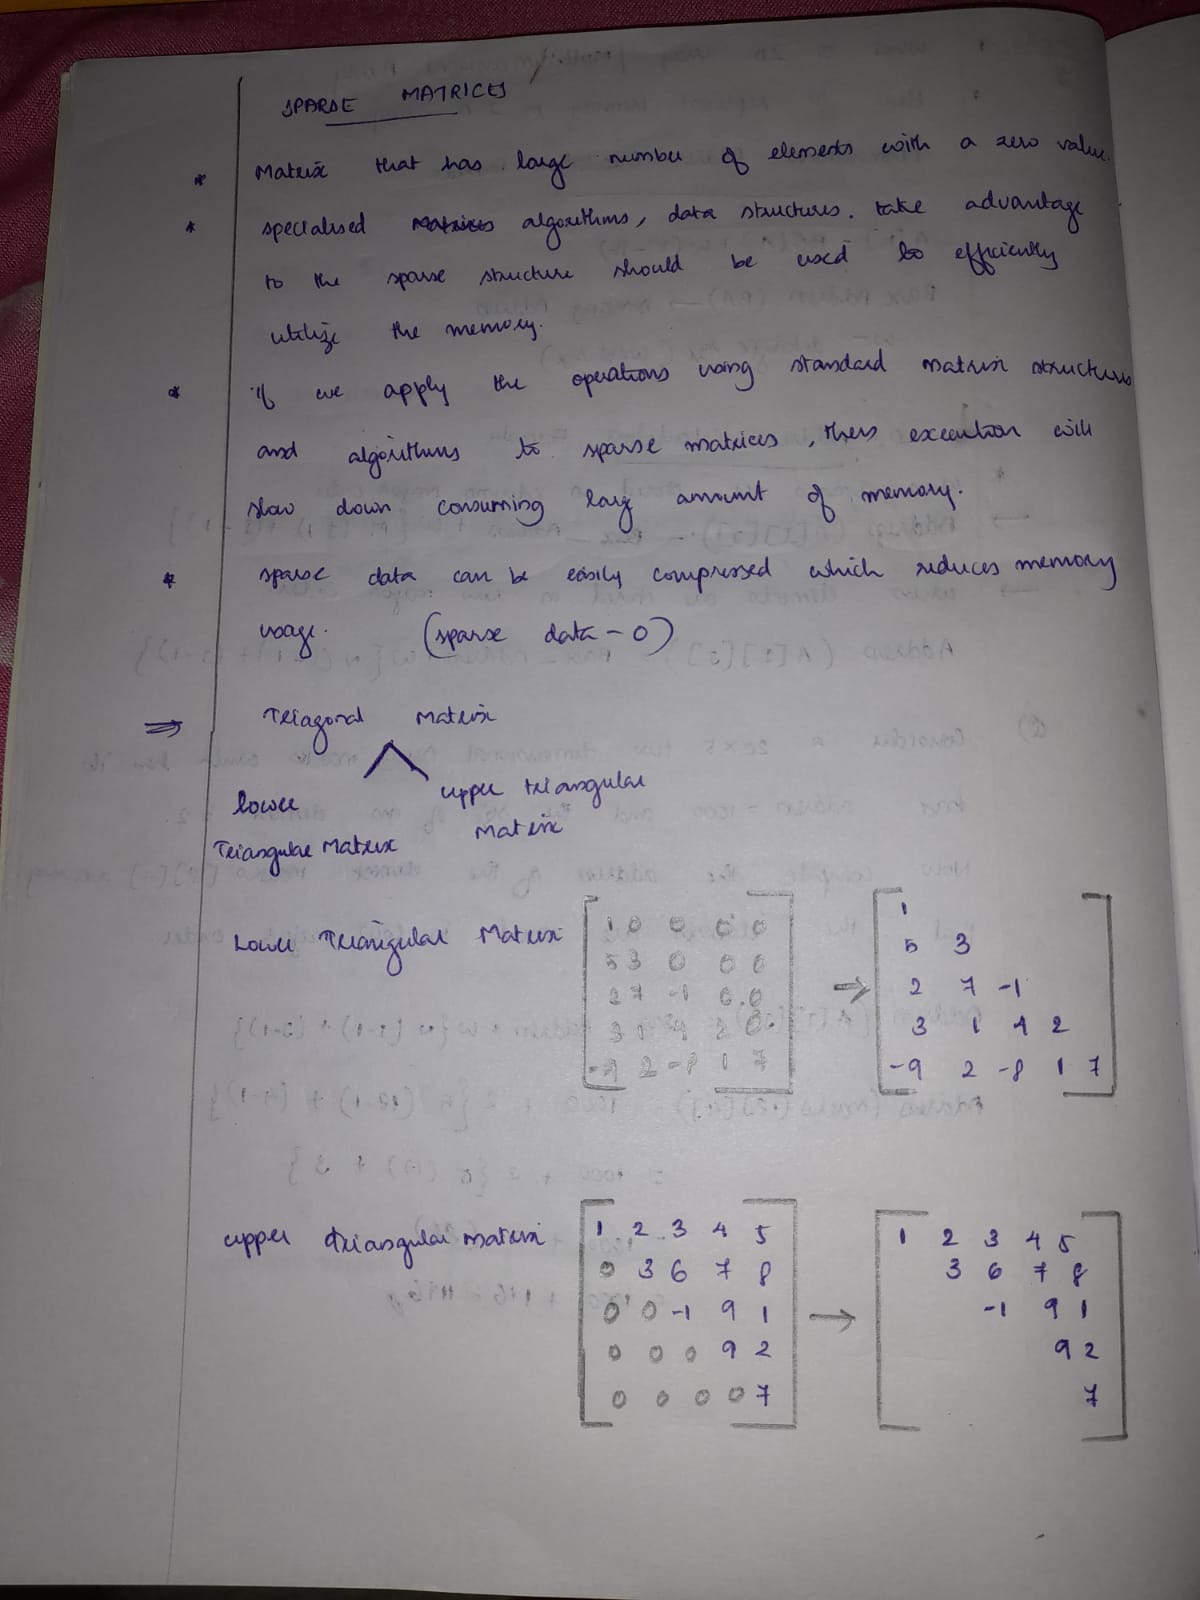 SPARSE MATRICES
* Matrix that has large number of elements with a zero value.
* specialised Matrices algorithms, data structures. take advantage
to the sparse structure should be used to efficiently
utilize the memory.
* if we apply the operations using standard matrix structures
and algorithms to sparse matrices, then execution will
slow down consuming larg amount of memory.
* sparse data can be easily compressed which reduces memory
usage. (sparse data - 0)
⇒ Triagonal Matrix
lower upper triangular
Triangular Matrix Matrix
Lower Triangular Matrix
1 0 0 0 0
5 3 0 0 0
2 7 -1 0 0
3 1 4 2 0
-9 2 -8 1 7
→
1
5 3
2 7 -1
3 1 4 2
-9 2 -8 1 7
upper triangular matrix
1 2 3 4 5
0 3 6 7 8
0 0 -1 9 1
0 0 0 9 2
0 0 0 0 7
→
1 2 3 4 5
3 6 7 8
-1 9 1
9 2
7